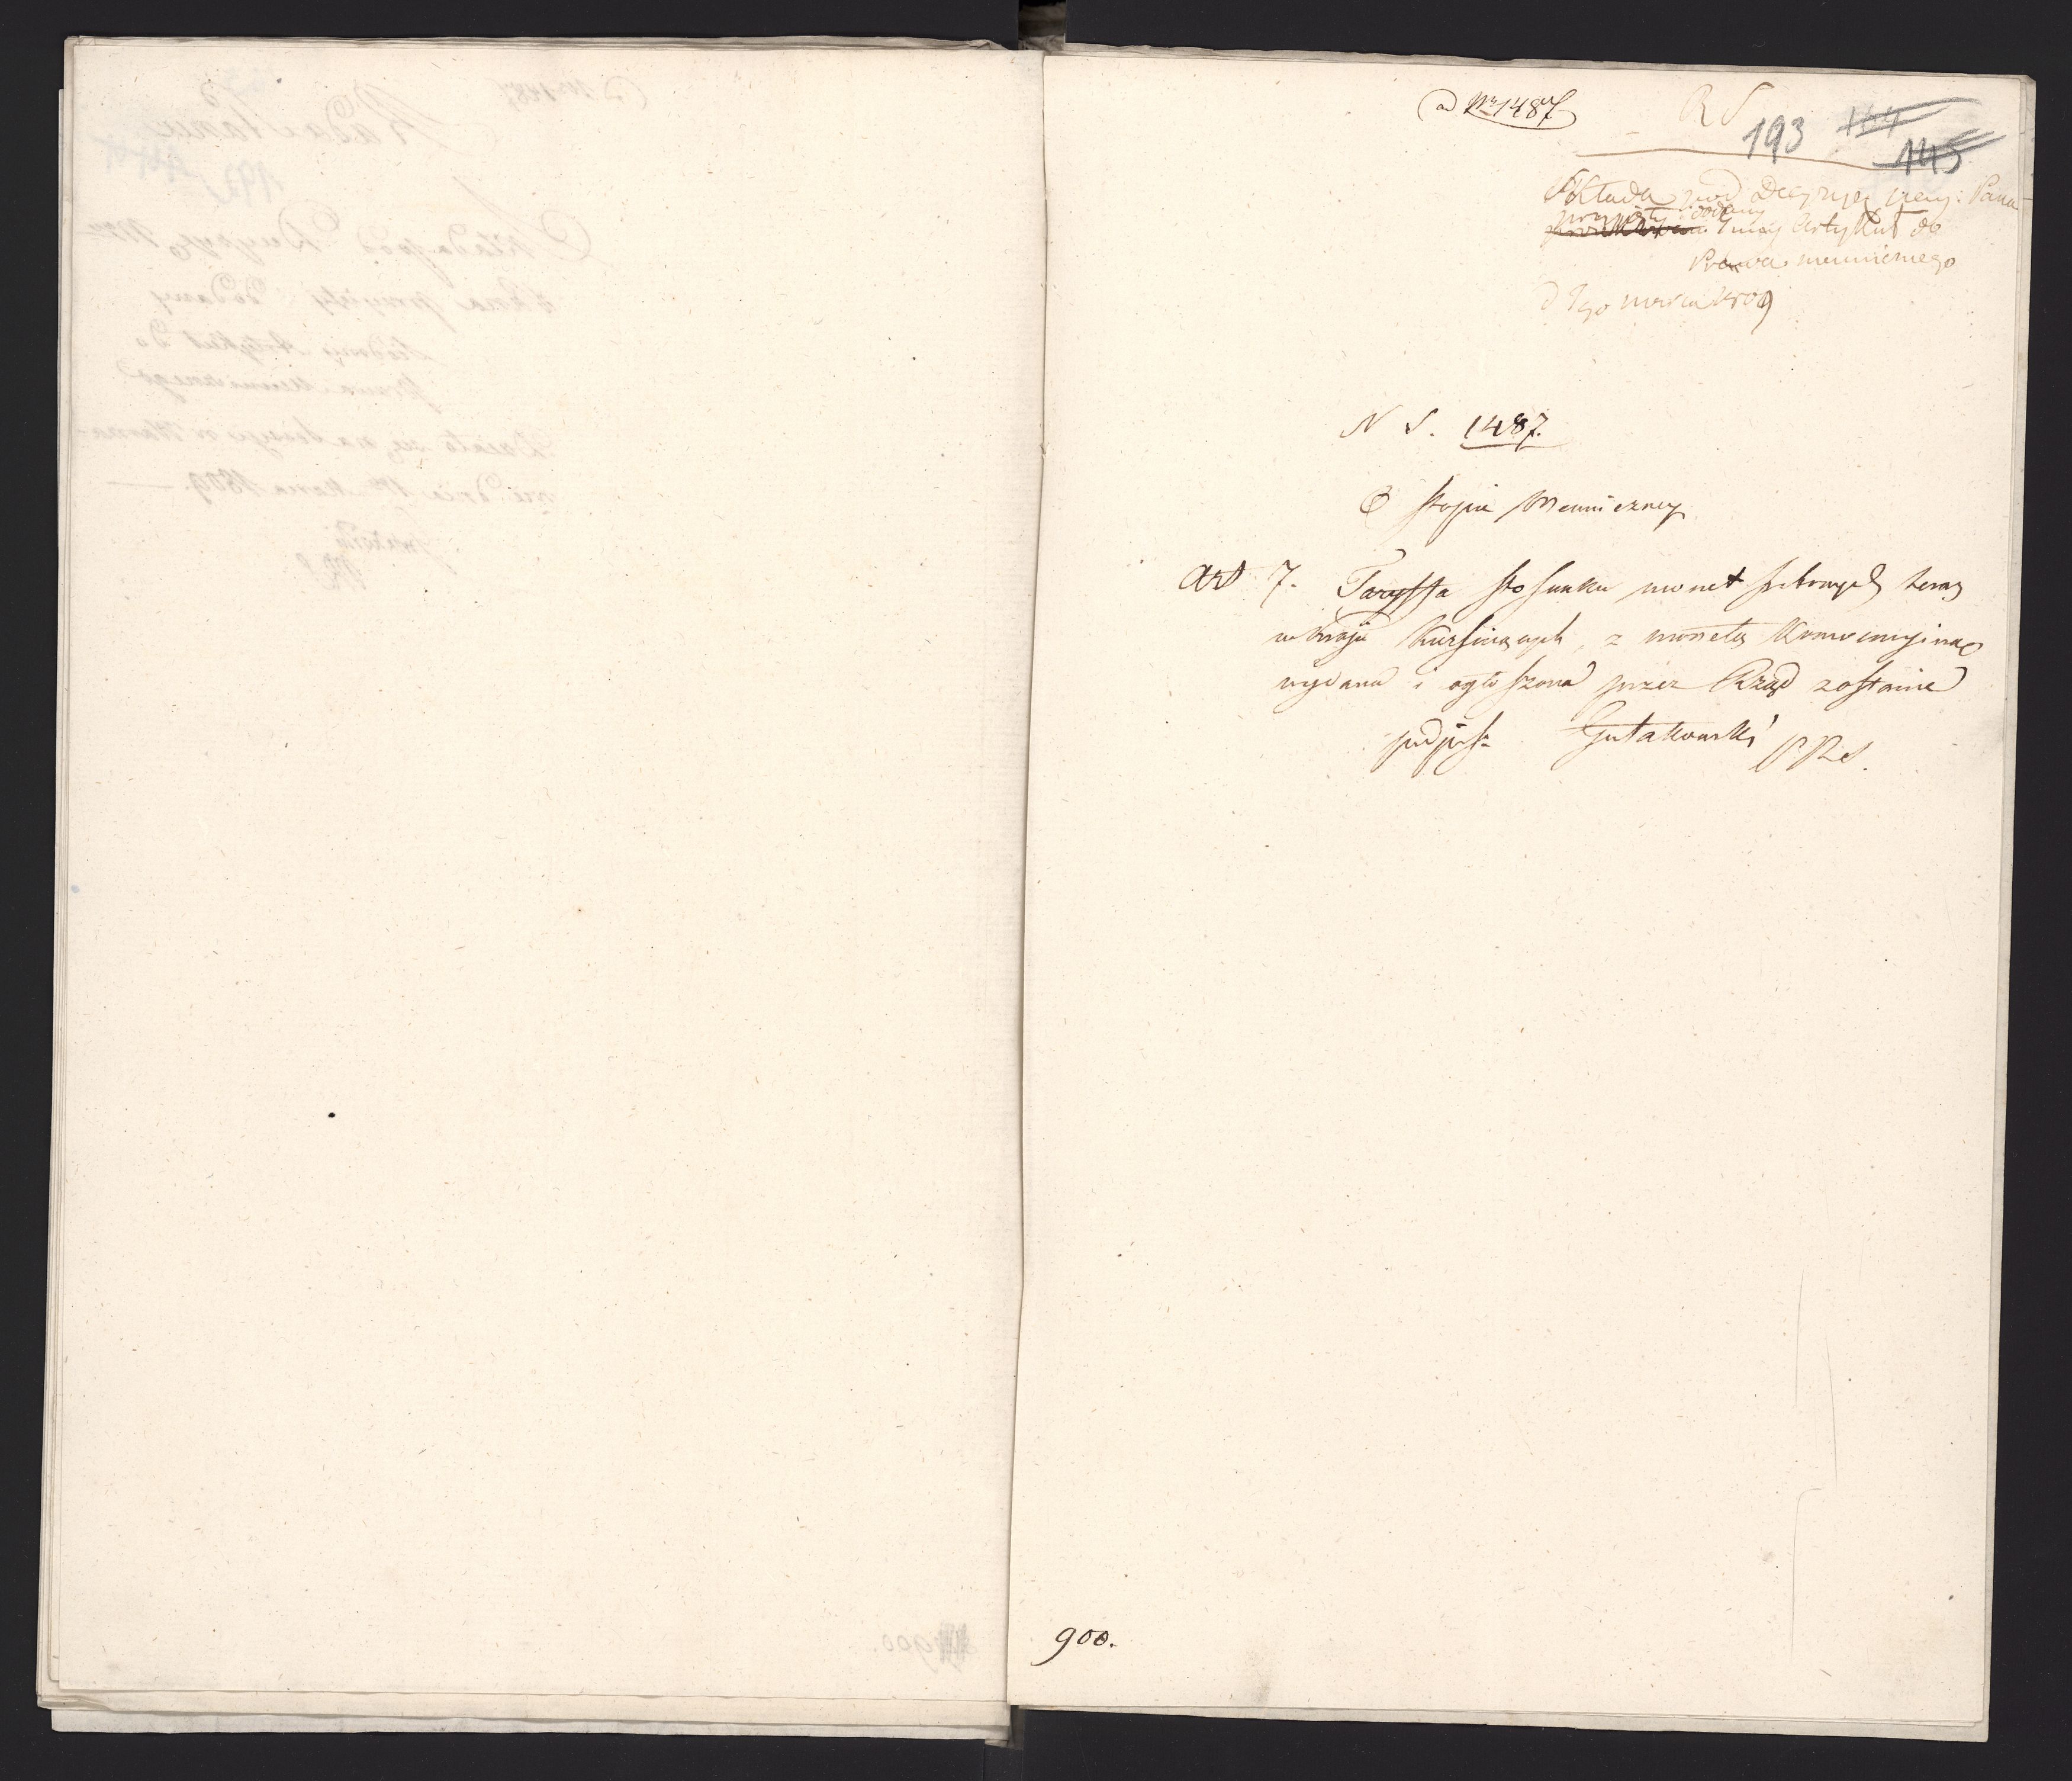 ad Nro 1487
R S
193 164
145
Składa pod Decyzyą Nay: Pana
przyięty i dodany
7my Artykuł do
Prawa mennicznego
d 1go marca 1809
N S. 1487.
O stopie Menniczney
Art 7. Taryffa stosunku monet srebrnych teraz
w kraju kursuiących, z monetą Konwencyiną
wydana i ogłoszona przez Rząd zostanie
podpis: Gutakowski PRS.
900.